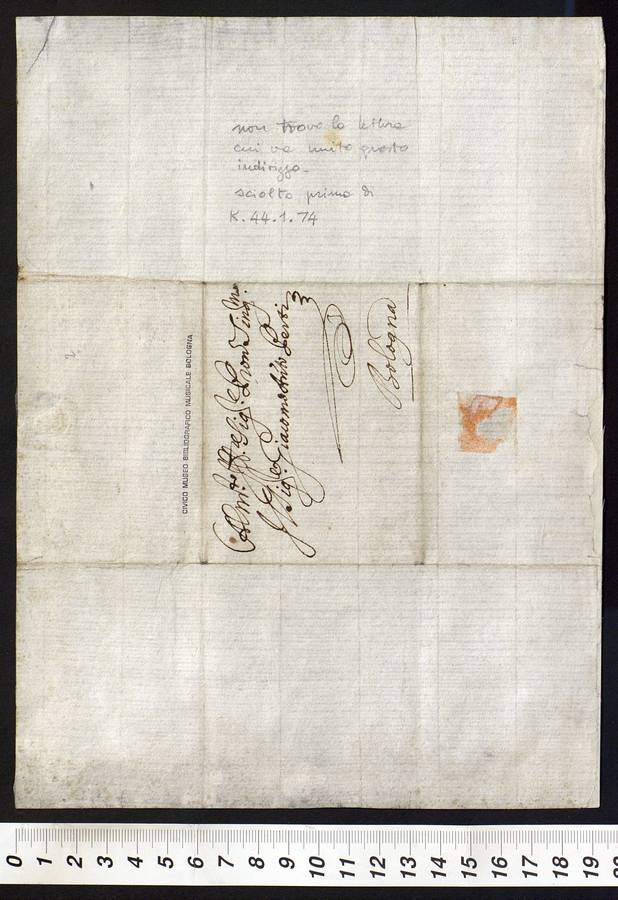 non trovo la lettera
cui va unito questo
indirizzo -
sciolto prima di
K. 44.1.74
CIVICO MUSEO BIBLIOGRAFICO MUSICALE BOLOGNA
All m.to Ill.re Sig.r e Pron Sing.mo
Il Sig.r Giacomo Ant.o Perti
Bologna
0 1 2 3 4 5 6 7 8 9 10 11 12 13 14 15 16 17 18 19